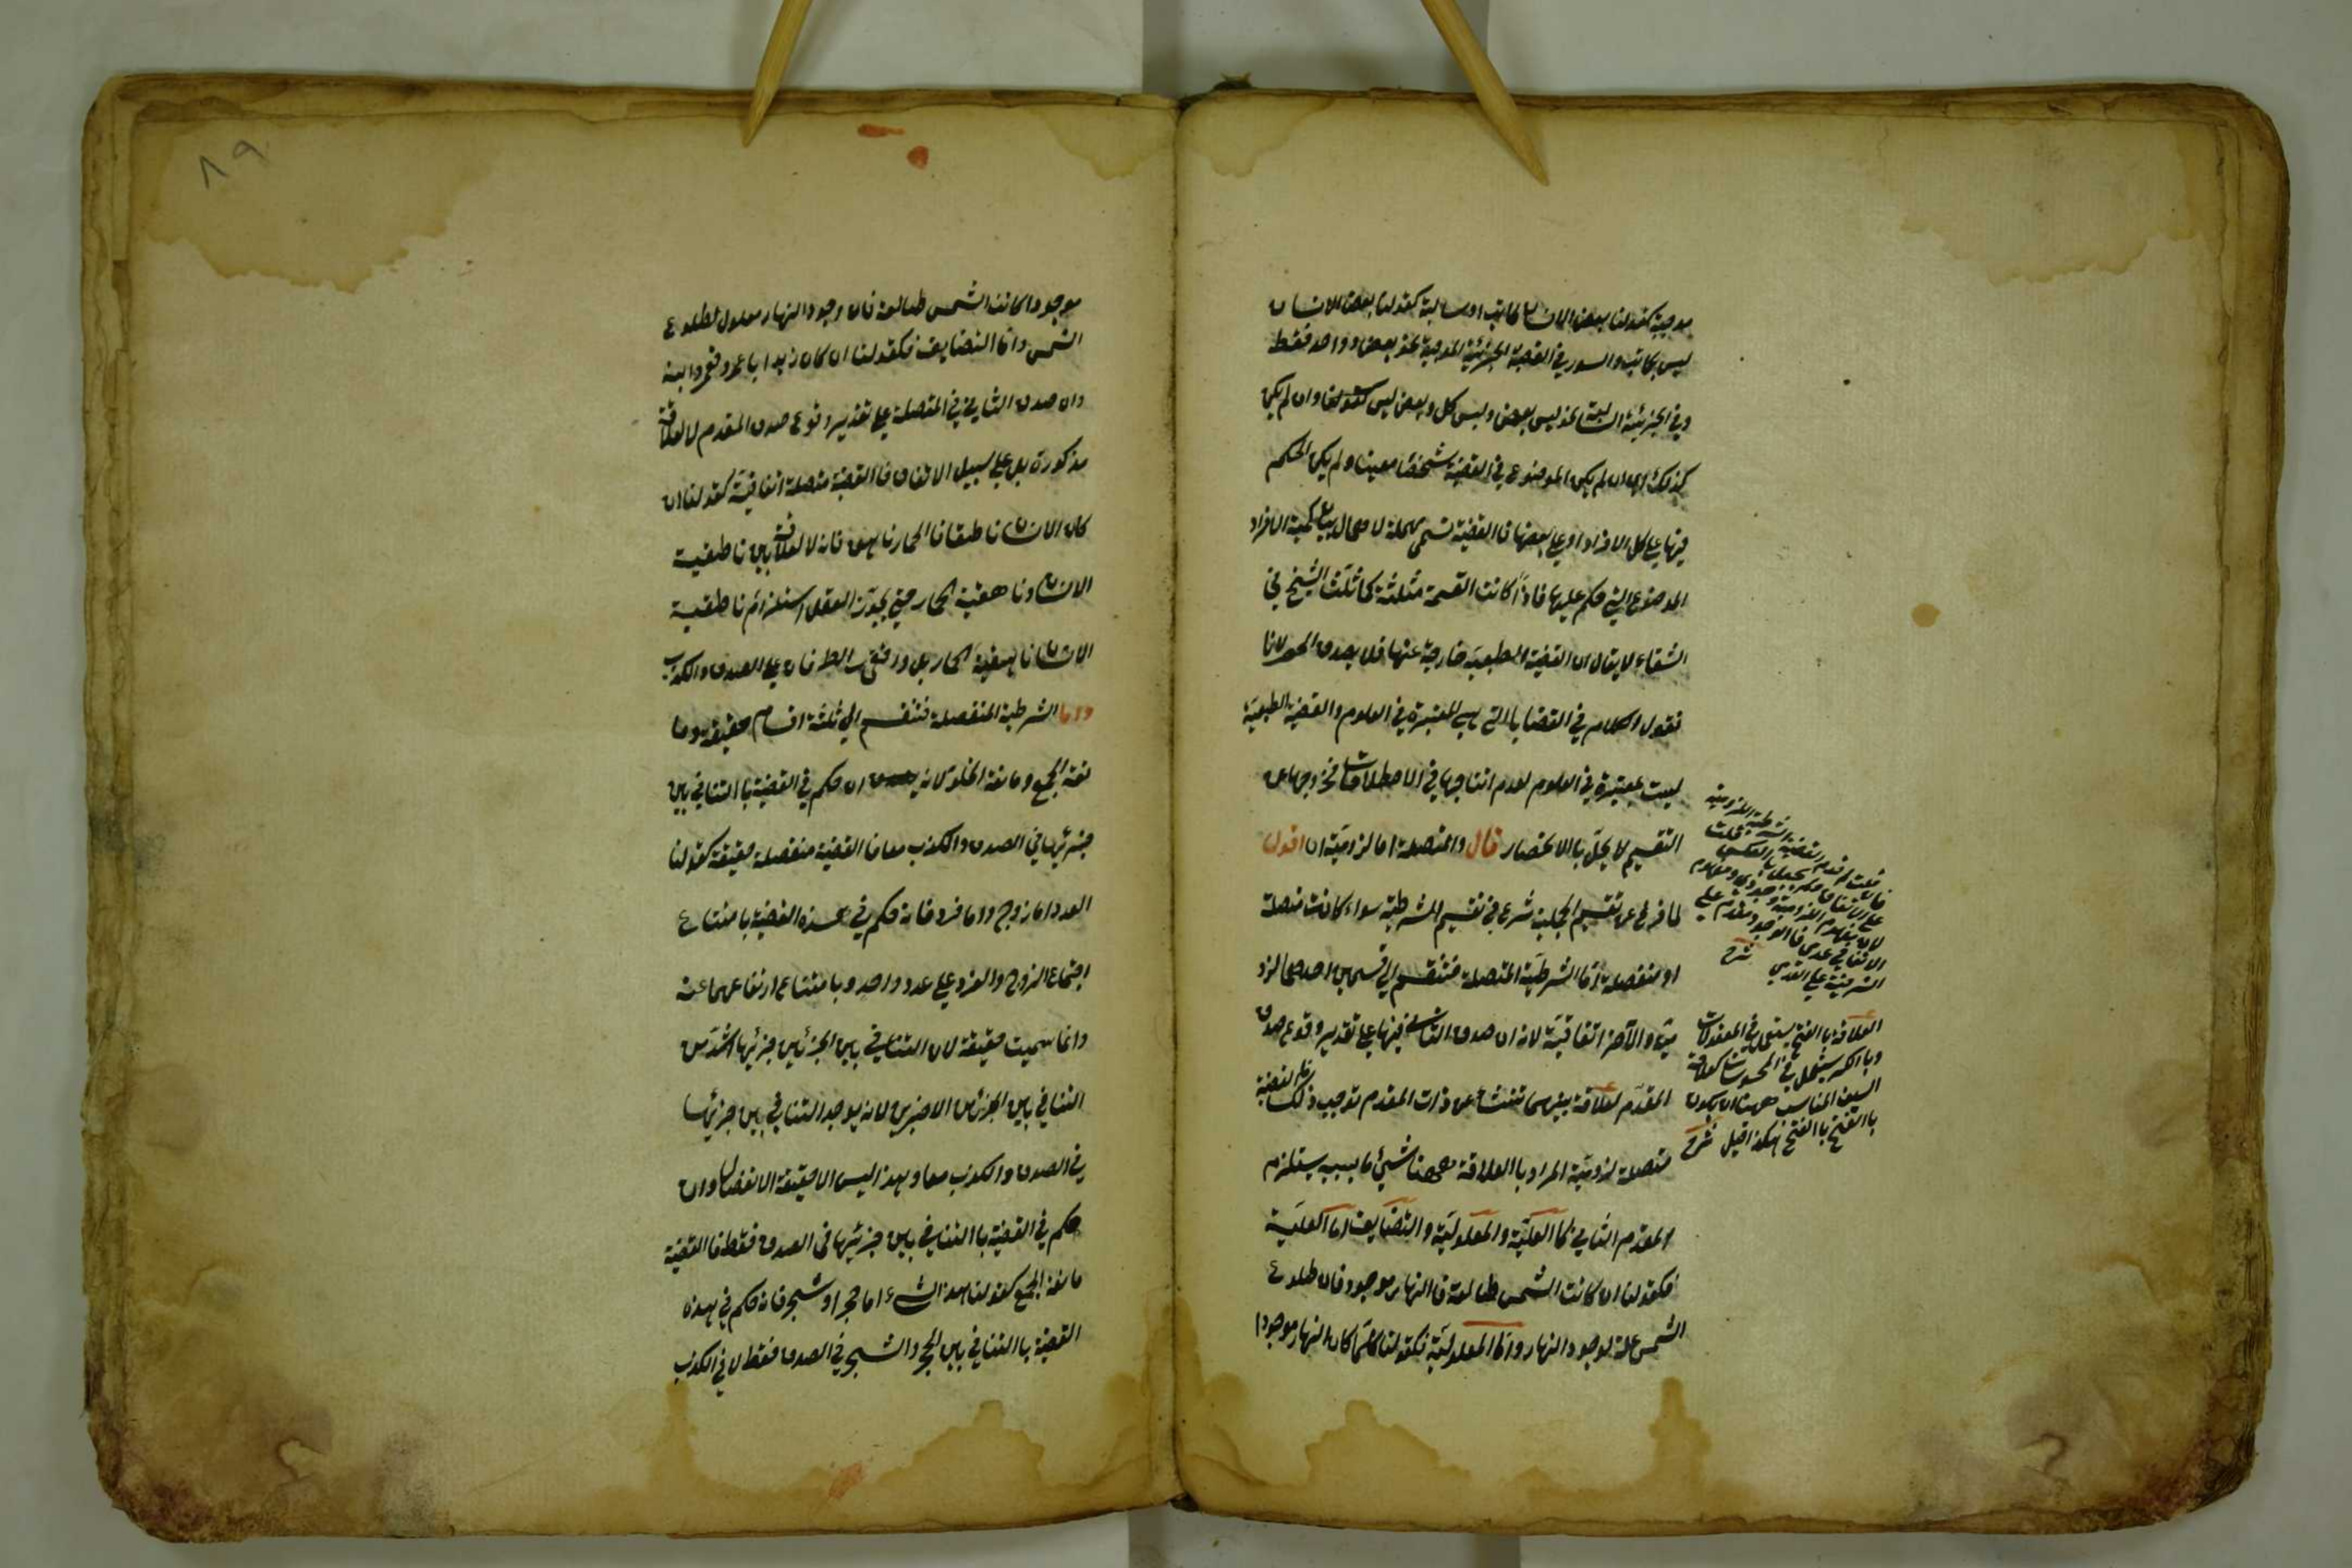 موجبة كقولنا بعض الانسان كاتب او سالبة كقولنا بعض الانسان
ليس بكاتب والسور في القضية الجزئية الموجبة نحو بعض و واحد فقط
وفي الجزئية السالبة نحو ليس بعض وليس كل وبعض ليس كقولنا وان لم يكن
كذلك اي ان لم يكن الموضوع في القضية شخصا معينا ولم يكن الحكم
فيها على كل الافراد او على بعضها فالقضية تسمى مهملة لاهمال بيان كمية الافراد
الموضوع التي حكم عليها فاذا كانت القسمة مثلثة كما ثلث الشيخ في
الشفاء لا يقال ان القضية الطبعية خارجة عنها فلا يصدق الحصر لانا
نقول الكلام في القضايا التي هي المعتبرة في العلوم والقضية الطبعية
ليست بمعتبرة في العلوم لعدم انتاجها في الاصطلاحات فخروجها عن
التقسيم لا يخل بالانحصار قال والمتصلة اما لزومية ان اقول
لما فرغ عن تقسيم الحملية شرع في تقسيم الشرطية سواء كانت متصلة
او منفصلة اما الشرطية المتصلة فتنقسم الى قسمين احدهما لزو
مية والآخر اتفاقية لانه ان صدق التالي فيها على تقدير وقوع صدق
المقدم لعلاقة بينهما تنشأ عن ذات المقدم توجب ذلك فالقضية
متصلة لزومية المراد بالعلاقة ههنا شيئ ما بسببه يستلزم
المقدم التالي كما العلية والمعلولية والتضايف اما العلية
فكقولنا ان كانت الشمس طالعة فالنهار موجود فان طلوع
الشمس علة لوجود النهار واما المعلولية فكقولنا كلما كان النهار موجودا
العلاقة بالفتح يستعمل في المعقولات
وبالكسر يستعمل في المحسوسات كعلاقة
السيف المناسب ههنا ان يكون
بالفتح هكذا قيل شرح
موجودا كانت الشمس طالعة فان وجود النهار معلول لطلوع
الشمس واما التضايف فكقولنا ان كان زيد ابا عمرو فعمرو ابنه
وان صدق التالي في المتصلة على تقدير وقوع صدق المقدم لا لعلاقة
مذكورة بل على سبيل الاتفاق فالقضية متصلة اتفاقية كقولنا ان
كان الانسان ناطقا فالحمار ناهق فانه لا لعلاقة بين ناطقية
الانسان وناهقية الحمار حتى يجوز العقل استلزام ناطقية
الانسان ناهقية الحمار بل وافق الطرفان على الصدق والكذب
واما الشرطية المنفصلة فتنقسم الى ثلثة اقسام حقيقة وما
نعة الجمع ومانعة الخلو لانه ان حكم في القضية بالتنافي بين
جزئيها في الصدق والكذب معا فالقضية منفصلة حقيقة كقولنا
العدد اما زوج واما فرد فانه حكم في هذه القضية بامتناع
اجتماع الزوج والفرد على عدد واحد وبامتناع ارتفاعهما عنه
وانما سميت حقيقة لان التنافي بين الجزئين جزئيها اشد من
التنافي بين الجزئين الاخيرين لانه يوجد التنافي بين جزئيها
في الصدق والكذب معا وهذا ليس الا حقيقة الانفصال وان
حكم في القضية بالتنافي بين جزئيها في الصدق فقط فالقضية
مانعة الجمع كقولنا هذا الشيء اما حجر او شجر فانه حكم في هذه
القضية بالتنافي بين الحجر والشجر في الصدق فقط لا في الكذب
٨٩